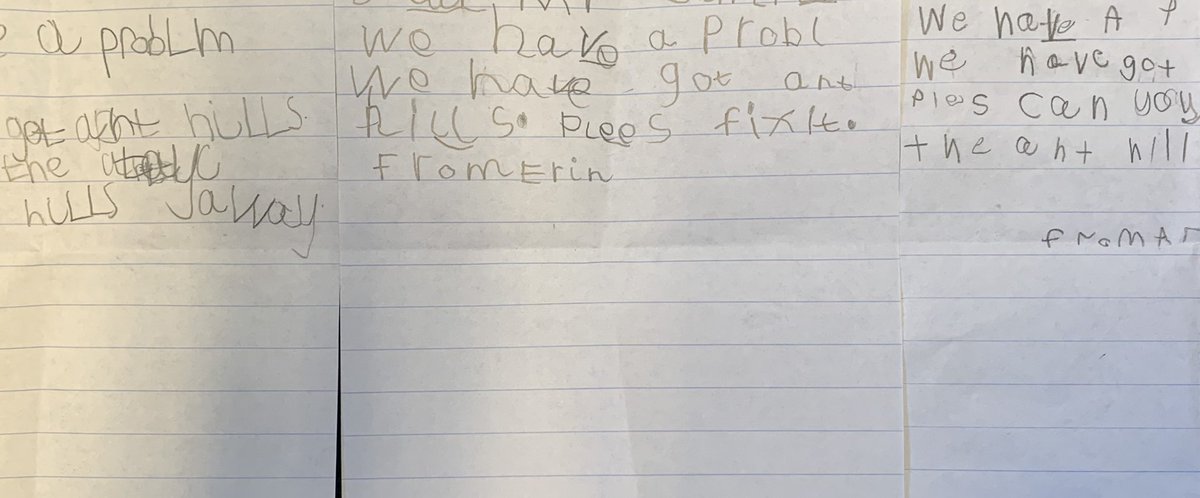 a problm
got acnt hills.
the
hills away
we have a Probl
We have got ant
hills. Plees fix it.
from Erin
We have A P
we have got
Ples can you
the ant hill
from Ar